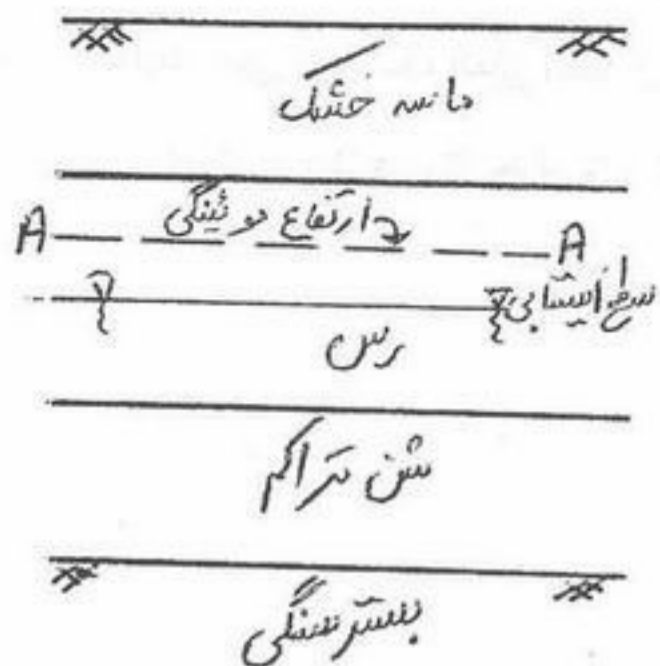 ماسه خشک
ارتفاع موئینگی
A A
سطح ایستابی
رس
شن متراکم
بستر سنگی